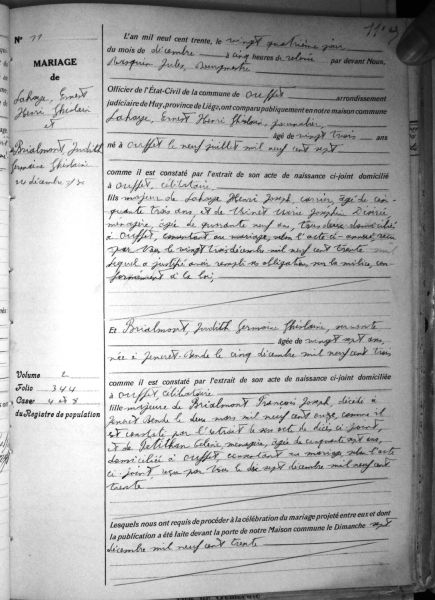 N° 11
MARIAGE
de
Lahaye, Ernest
Henri Ghislain
et
Brialmont, Judith
Germaine Ghislaine
24 décembre 1930
Volume 2
Folio 344
Cases 4 et 8
du Registre de population
L'an mil neuf cent trente, le vingt quatrième jour
du mois de décembre à cinq heures de relevée par devant Nous,
Jules, Bourgmestre
Officier de l'État-Civil de la commune de Ouffet arrondissement
judiciaire de Huy, province de Liège, ont comparu publiquement en notre maison commune
Lahaye, Ernest Henri Ghislain, journalier,
âgé de vingt trois ans
né à Ouffet le neuf juillet mil neuf cent sept
comme il est constaté par l'extrait de son acte de naissance ci-joint domicilié
à Ouffet, célibataire
fils majeur de Lahaye Henri Joseph, carrier, âgé de cin-
quante trois ans, et de Marie Joséphine Désirée
ménagère, âgée de quarante neuf ans, tous deux domiciliés
à Ouffet, consentant au mariage, selon l'acte ci-annexé, reçu
par Nous le vingt trois décembre mil neuf cent trente
lequel a justifié avoir rempli ses obligations sur la milice, con-
formément à la loi,
Et Brialmont, Judith Germaine Ghislaine, servante
âgée de vingt sept ans,
née à le cinq décembre mil neuf cent trois
comme il est constaté par l'extrait de son acte de naissance ci-joint domiciliée
à Ouffet, célibataire
fille majeure de Brialmont François Joseph, décédé à
le deux mars mil neuf cent onze, comme il
est constaté par l'extrait de son acte de décès ci-joint,
et de Célerie, ménagère, âgée de cinquante sept ans,
domiciliée à Ouffet consentant au mariage selon l'acte
ci-joint, reçu par Nous le dix sept décembre mil neuf cent
trente
Lesquels nous ont requis de procéder à la célébration du mariage projeté entre eux et dont
la publication a été faite devant la porte de notre Maison commune le Dimanche sept
décembre mil neuf cent trente